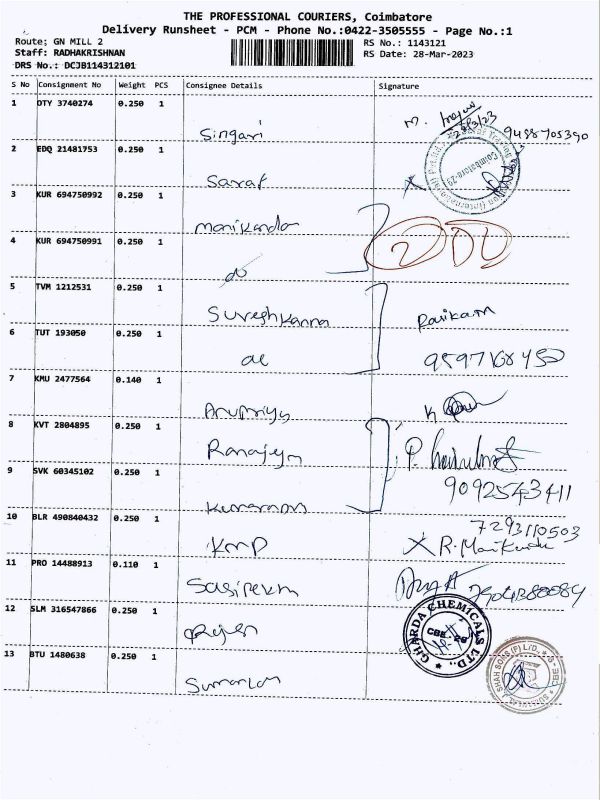 THE PROFESSIONAL COURIERS, Coimbatore
Delivery Runsheet - PCM - Phone No.:0422-3505555 - Page No.:1
Route; GN MILL 2
RS No.: 1143121
Staff: RADHAKRISHNAN
RS Date: 28-Mar-2023
DRS No.: DCJB114312101
S No Consignment No Weight PCS Consignee Details Signature
1 OTY 3740274 0.250 1
Singari
28/3/23
9488705390
2 EDQ 21481753 0.250 1
Saraf
Coimbatore-29
3 KUR 694750992 0.250 1
manikanda
2 DDU
4 KUR 694750991 0.250 1
do
5 TVM 1212531 0.250 1
Sureshkanna
Ravikam
6 TUT 193050 0.250 1
9597168450
7 KMU 2477564 0.140 1
Arupriya
8 KVT 2804895 0.250 1
9 SVK 60345102 0.250 1
9092543411
10 BLR 490840432 0.250 1
7293110503
Kmp
11 PRO 14488913 0.110 1
12 SLM 316547866 0.250 1
GHARDA CHEMICALS LTD.,
CBE-29
13 BTU 1480638 0.250 1
SHAH SONS (P) LTD.